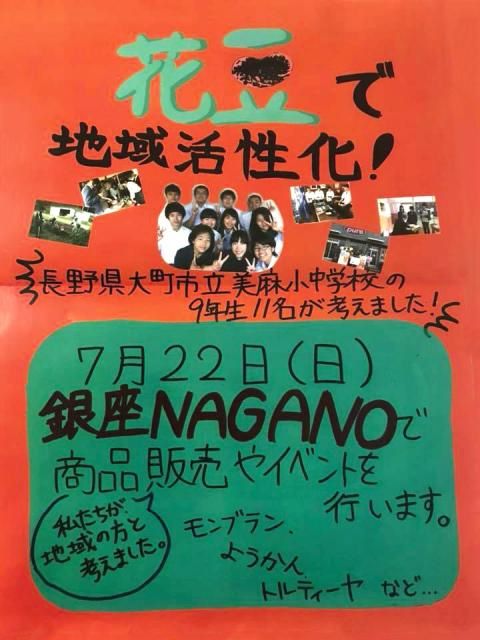 花豆で
地域活性化!
pure
長野県大町市立美麻小中学校の
9年生11名が考えました!
7月22日(日)
銀座NAGANOで
商品販売やイベントを
行います。
私たちが、
地域の方と
考えました。
モンブラン、
ようかん
トルティーヤ など…